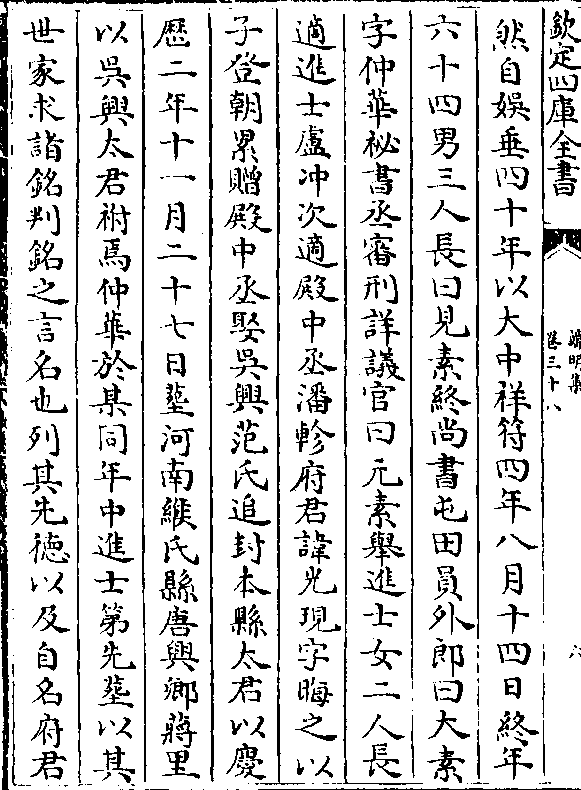 欽定四庫全書
端明集
卷三十八
六
然自娛垂四十年以大中祥符四年八月十四日終年
六十四男三人長曰見素終尚書屯田員外郎曰大素
字仲華祕書丞審刑詳議官曰元素舉進士女二人長
適進士盧冲次適殿中丞潘軫府君諱光現字晦之以
子登朝累贈殿中丞娶吳興范氏追封本縣太君以慶
歴二年十一月二十七日塟河南緱氏縣唐興鄉蔣里
以吳興太君祔焉仲華於某同年中進士第先塟以其
世家求誌銘判銘之言名也列其先徳以及自名府君